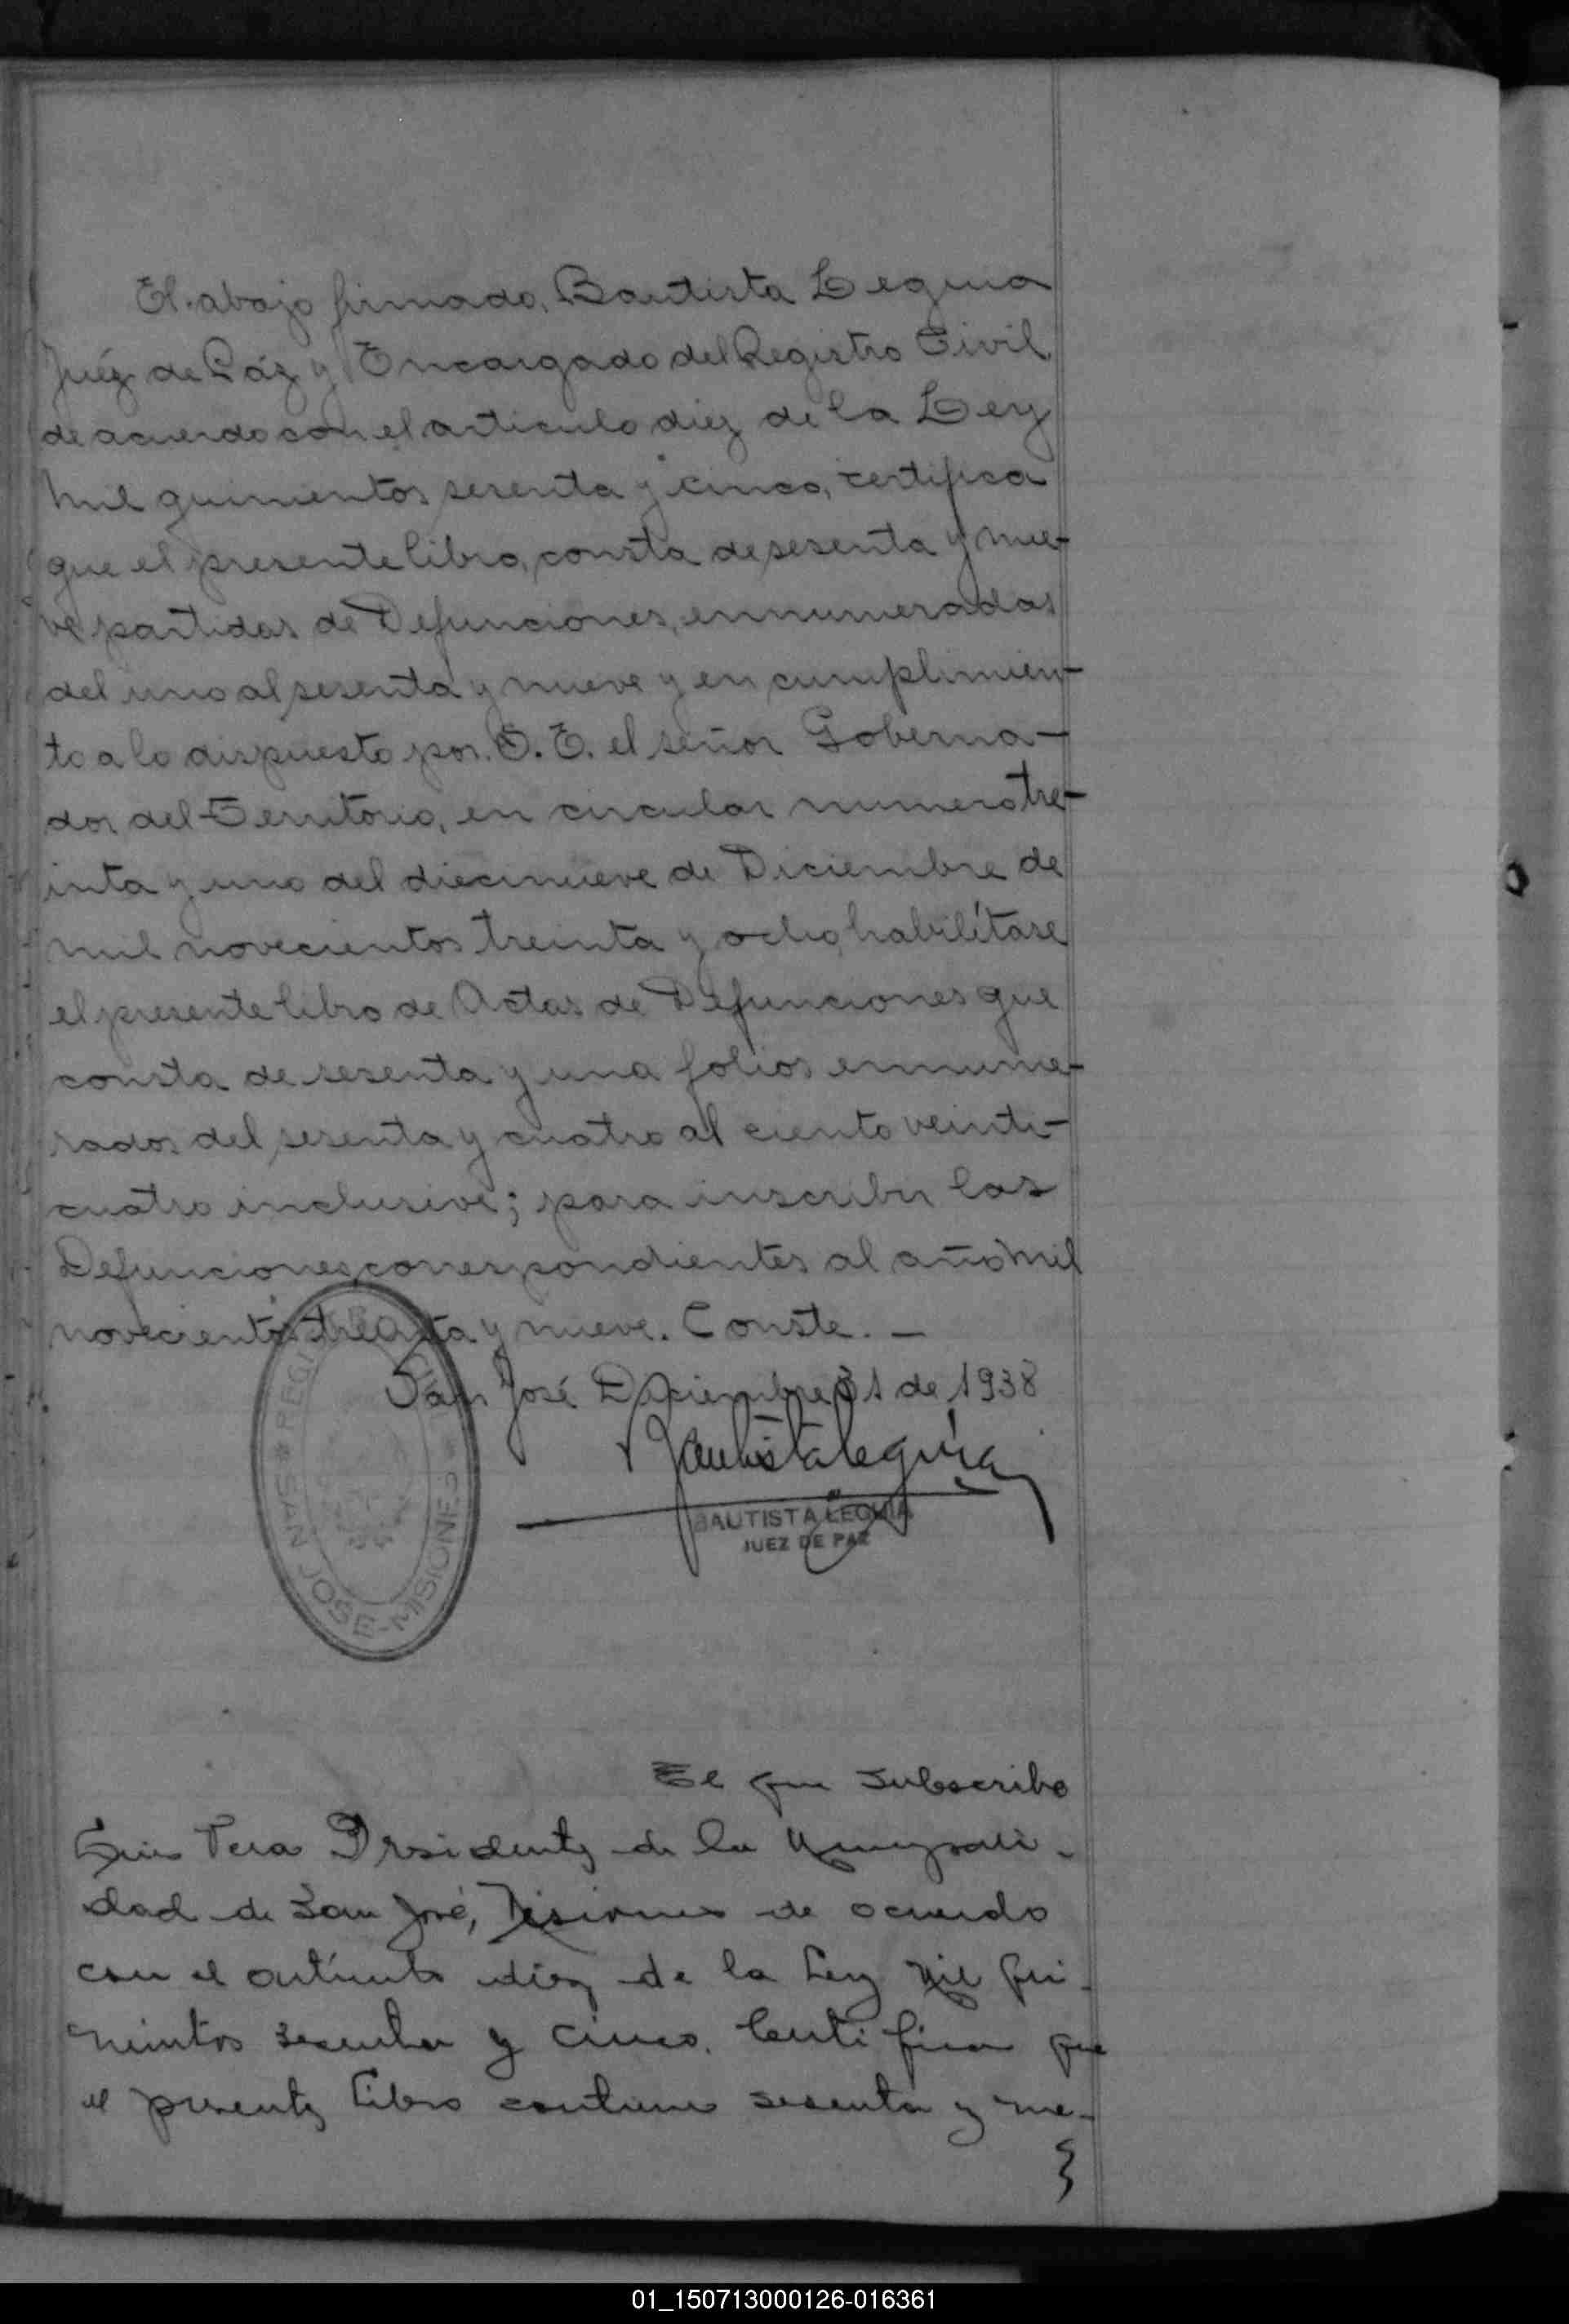 El abajo firmado, Bautista Leguia
Juéz de Páz y Encargado del Registro Civil,
de acuerdo con el articulo diez de la Ley
mil quinientos sesenta y cinco, certifica
que el presente libro, consta de sesenta y nue-
ve partidas de Defunciones, ennumeradas
del uno al sesenta y nueve y en cumplimien-
to a lo dispuesto por S. E. el señor Goberna-
dor del Territorio, en circular numero tre-
inta y uno del diecinueve de Diciembre de
mil novecientos treinta y ocho, habilítase
el presente libro de Actas de Defunciones que
consta de sesenta y una folios ennume-
rados del sesenta y cuatro al ciento veinti-
cuatro inclusive; para inscribir las
Defunciones correspondientes al año mil
novecientos treinta y nueve. Conste. —
San José Diciembre 31 de 1938
Bautista Leguia
BAUTISTA LEGUIA
JUEZ DE PAZ
REGISTRO CIVIL * SAN JOSE-MISIONES *
El que subscribe
Luis Vera Presidente de la Municipali-
dad de San José, Misiones de acuerdo
con el artículo diez de la Ley mil qui-
nientos sesenta y cinco. Certifica que
el presente Libro contiene sesenta y nue-
01_150713000126-016361